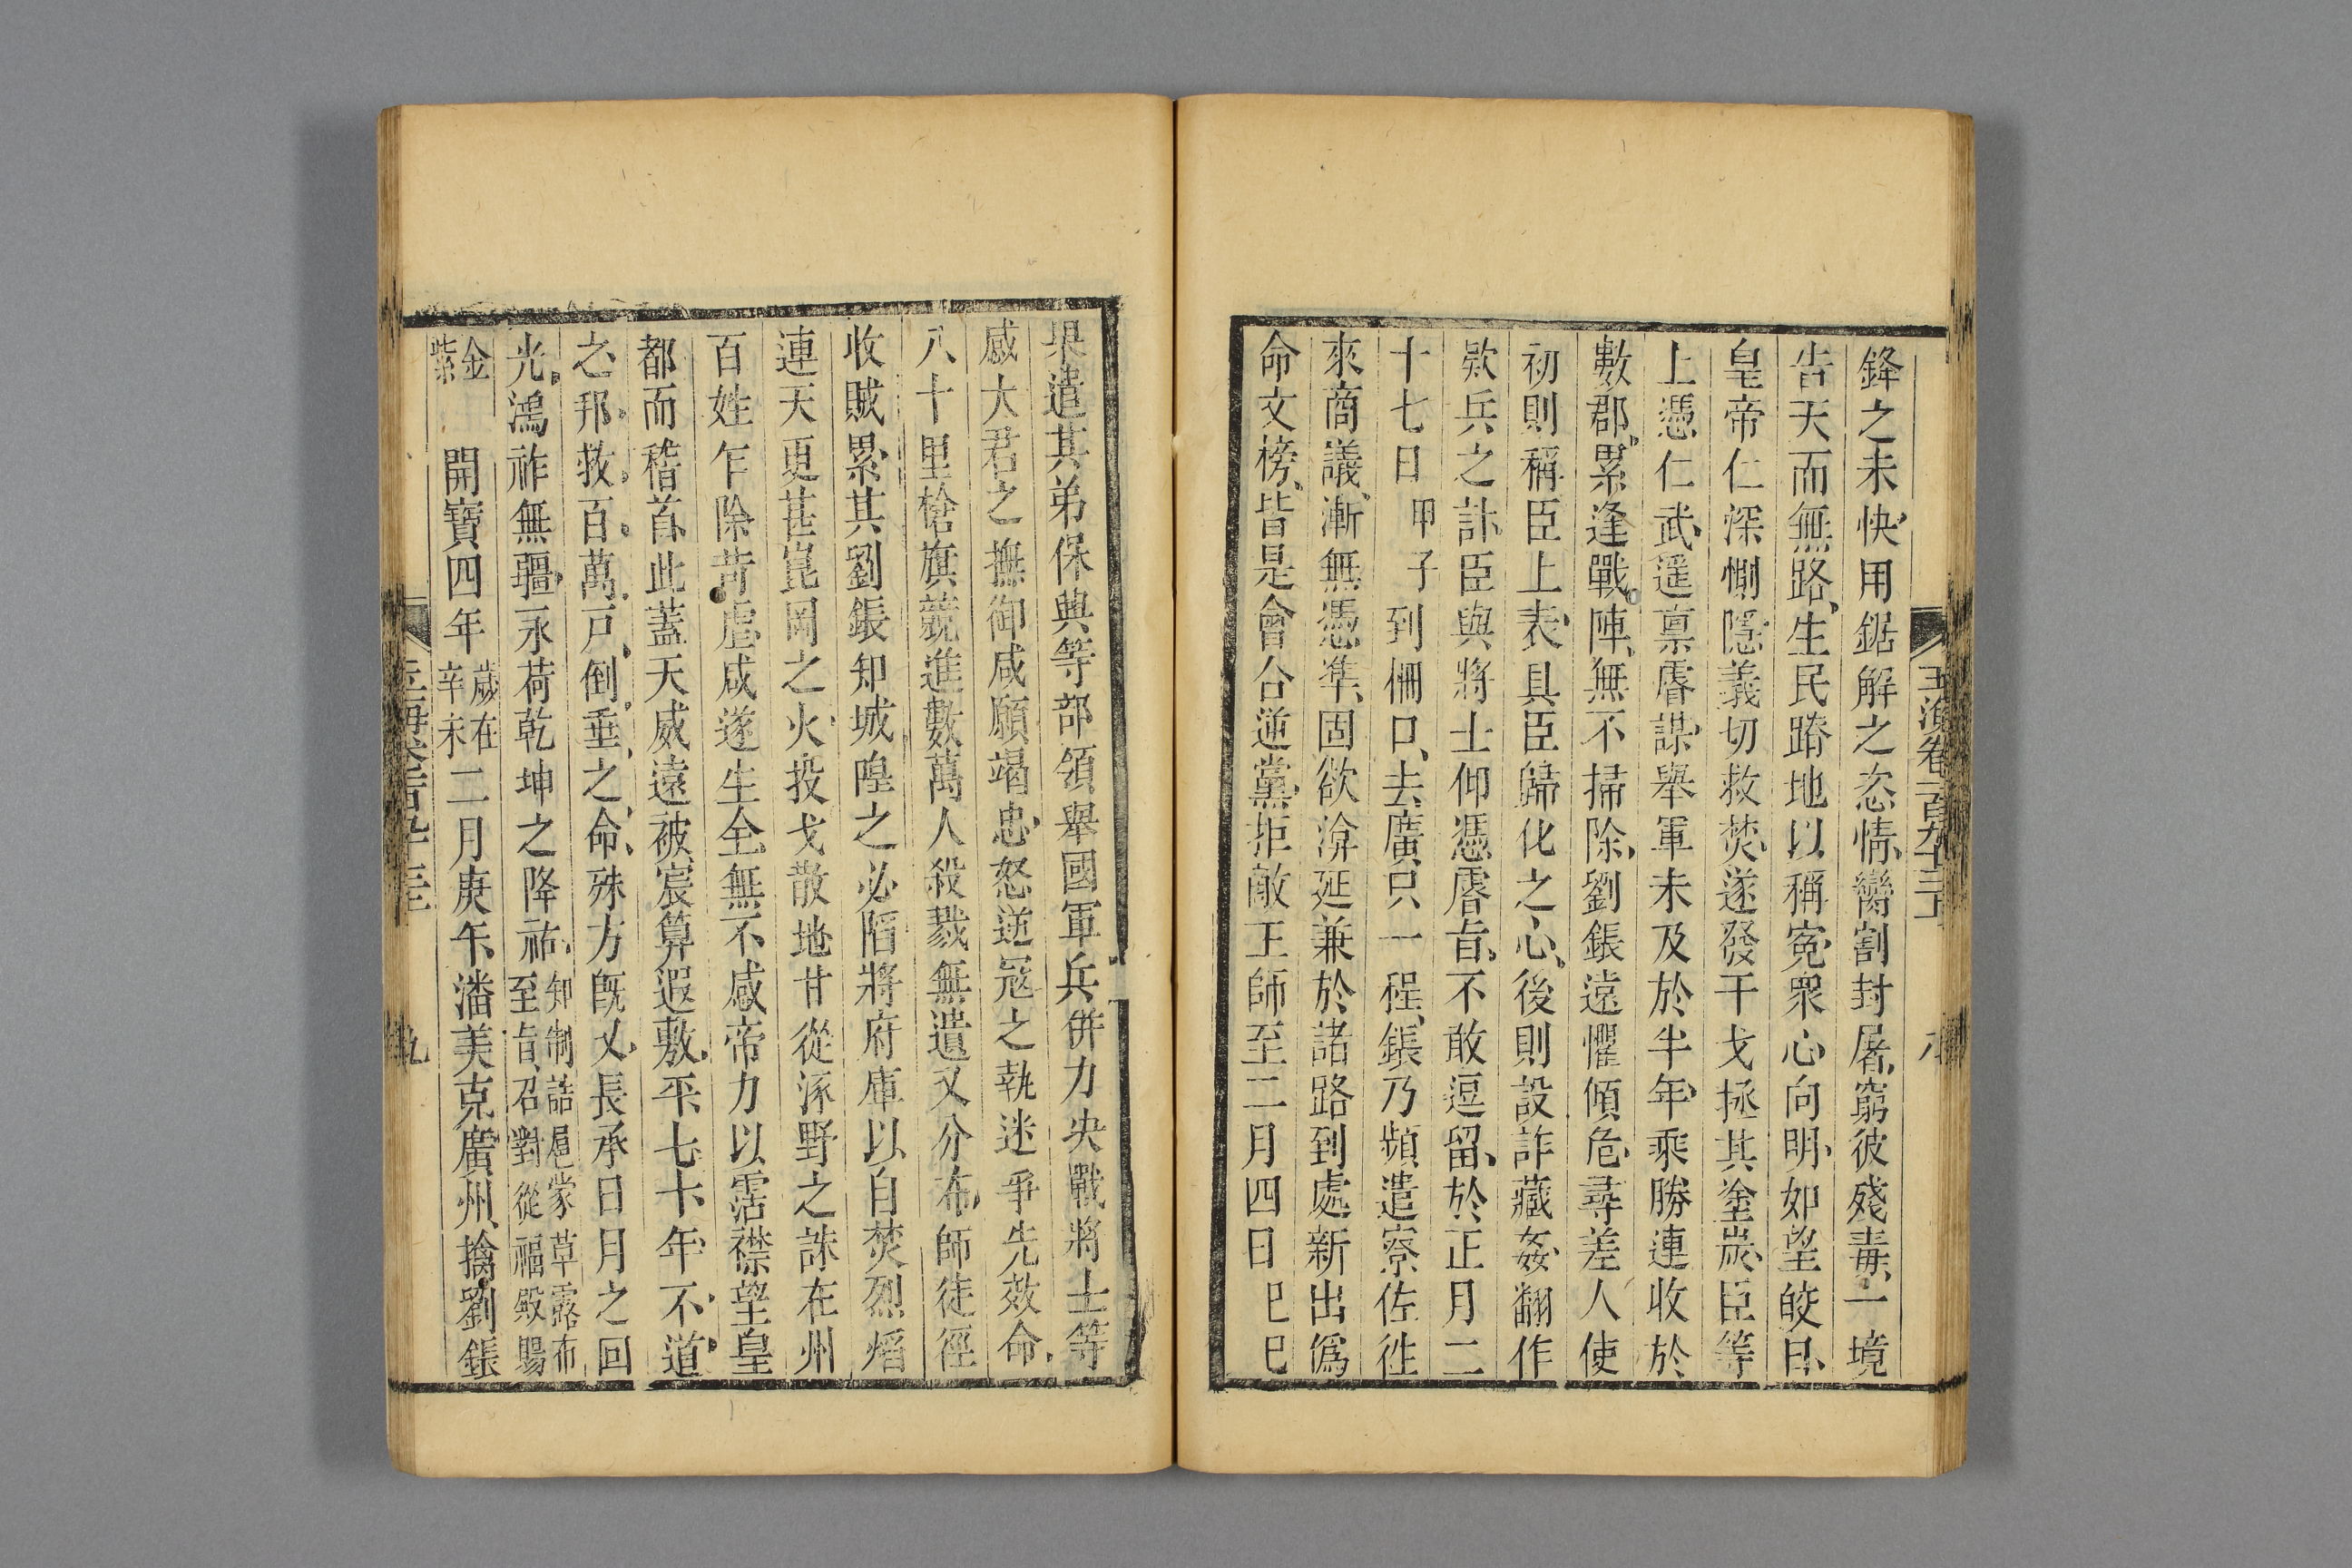 鋒之未快用鋸解之恣情臠割封屠窮彼殘毒一境
告天而無路生民蹐地以稱寃衆心向明如望皎日
皇帝仁深惻隱義切救焚遂發干戈拯其塗炭臣等
上憑仁武遥禀睿謀舉軍未及於半年乘勝連收於
數郡累逢戰陣無不掃除劉鋹遠懼傾危尋差人使
初則稱臣上表具臣歸化之心後則設詐藏姦翻作
欵兵之計臣與將士仰憑睿旨不敢逗留於正月二
十七日甲子到柵口去廣只一程鋹乃頻遣寮佐徃
來商議漸無憑準固欲淹延兼於諸路到處新出僞
命文榜皆是會合逆黨拒敵王師至二月四日巳巳
果遣其弟保興等部領舉國軍兵併力决戰將士等
感大君之撫御咸願竭忠怒逆冦之執迷爭先效命
八十里槍旗競進數萬人殺戮無遺又分布師徒徑
收賊壘其劉鋹知城隍之必陷將府庫以自焚烈熖
連天更甚崑岡之火投戈散地甘從涿野之誅在州
百姓乍除苛虐咸遂生全無不感帝力以霑襟望皇
都而稽首此蓋天威遠被宸算遐敷平七十年不道
之邦救百萬戶倒垂之命殊方旣乂長承日月之回
光鴻祚無疆永荷乾坤之降祐知制誥扈蒙草露布至旨召對從福殿賜
金紫 開寶四年歲在辛未二月庚午潘美克廣州擒劉鋹